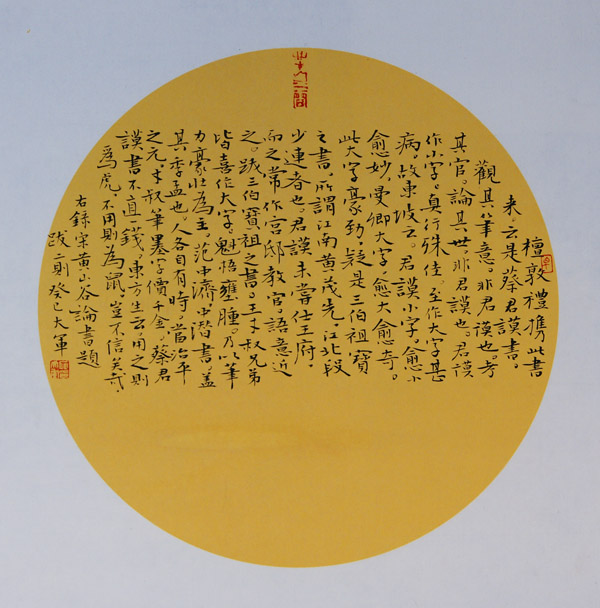 檀敦禮攜此書
来。云是蔡君謨書。
觀其筆意。非君謨也。考
其官。論其世。非君謨也。君謨
作小字。真行殊佳。至作大字甚
病。故東坡云。君謨小字。愈小
愈妙。曼卿大字。愈大愈奇。
此大字豪勁。疑是三伯祖寶
之書。所謂江南黄茂先。江北段
少連者也。君謨未嘗仕王府。
而之常作宮邸教官。語意近
之。跋三伯寶祖之書。王才叔兄弟
皆喜作大字。魁悟壅腫。乃以筆
力豪壮為主。范中濟中潛書。盖
其季孟也。人各自有時。當治平
之元。才叔筆墨字價千金。蔡君
謨書不直一錢。東方生云用之則
爲虎。不用則為鼠。豈不信矣哉。
右録宋黄山谷論書題
跋二則 癸巳大軍